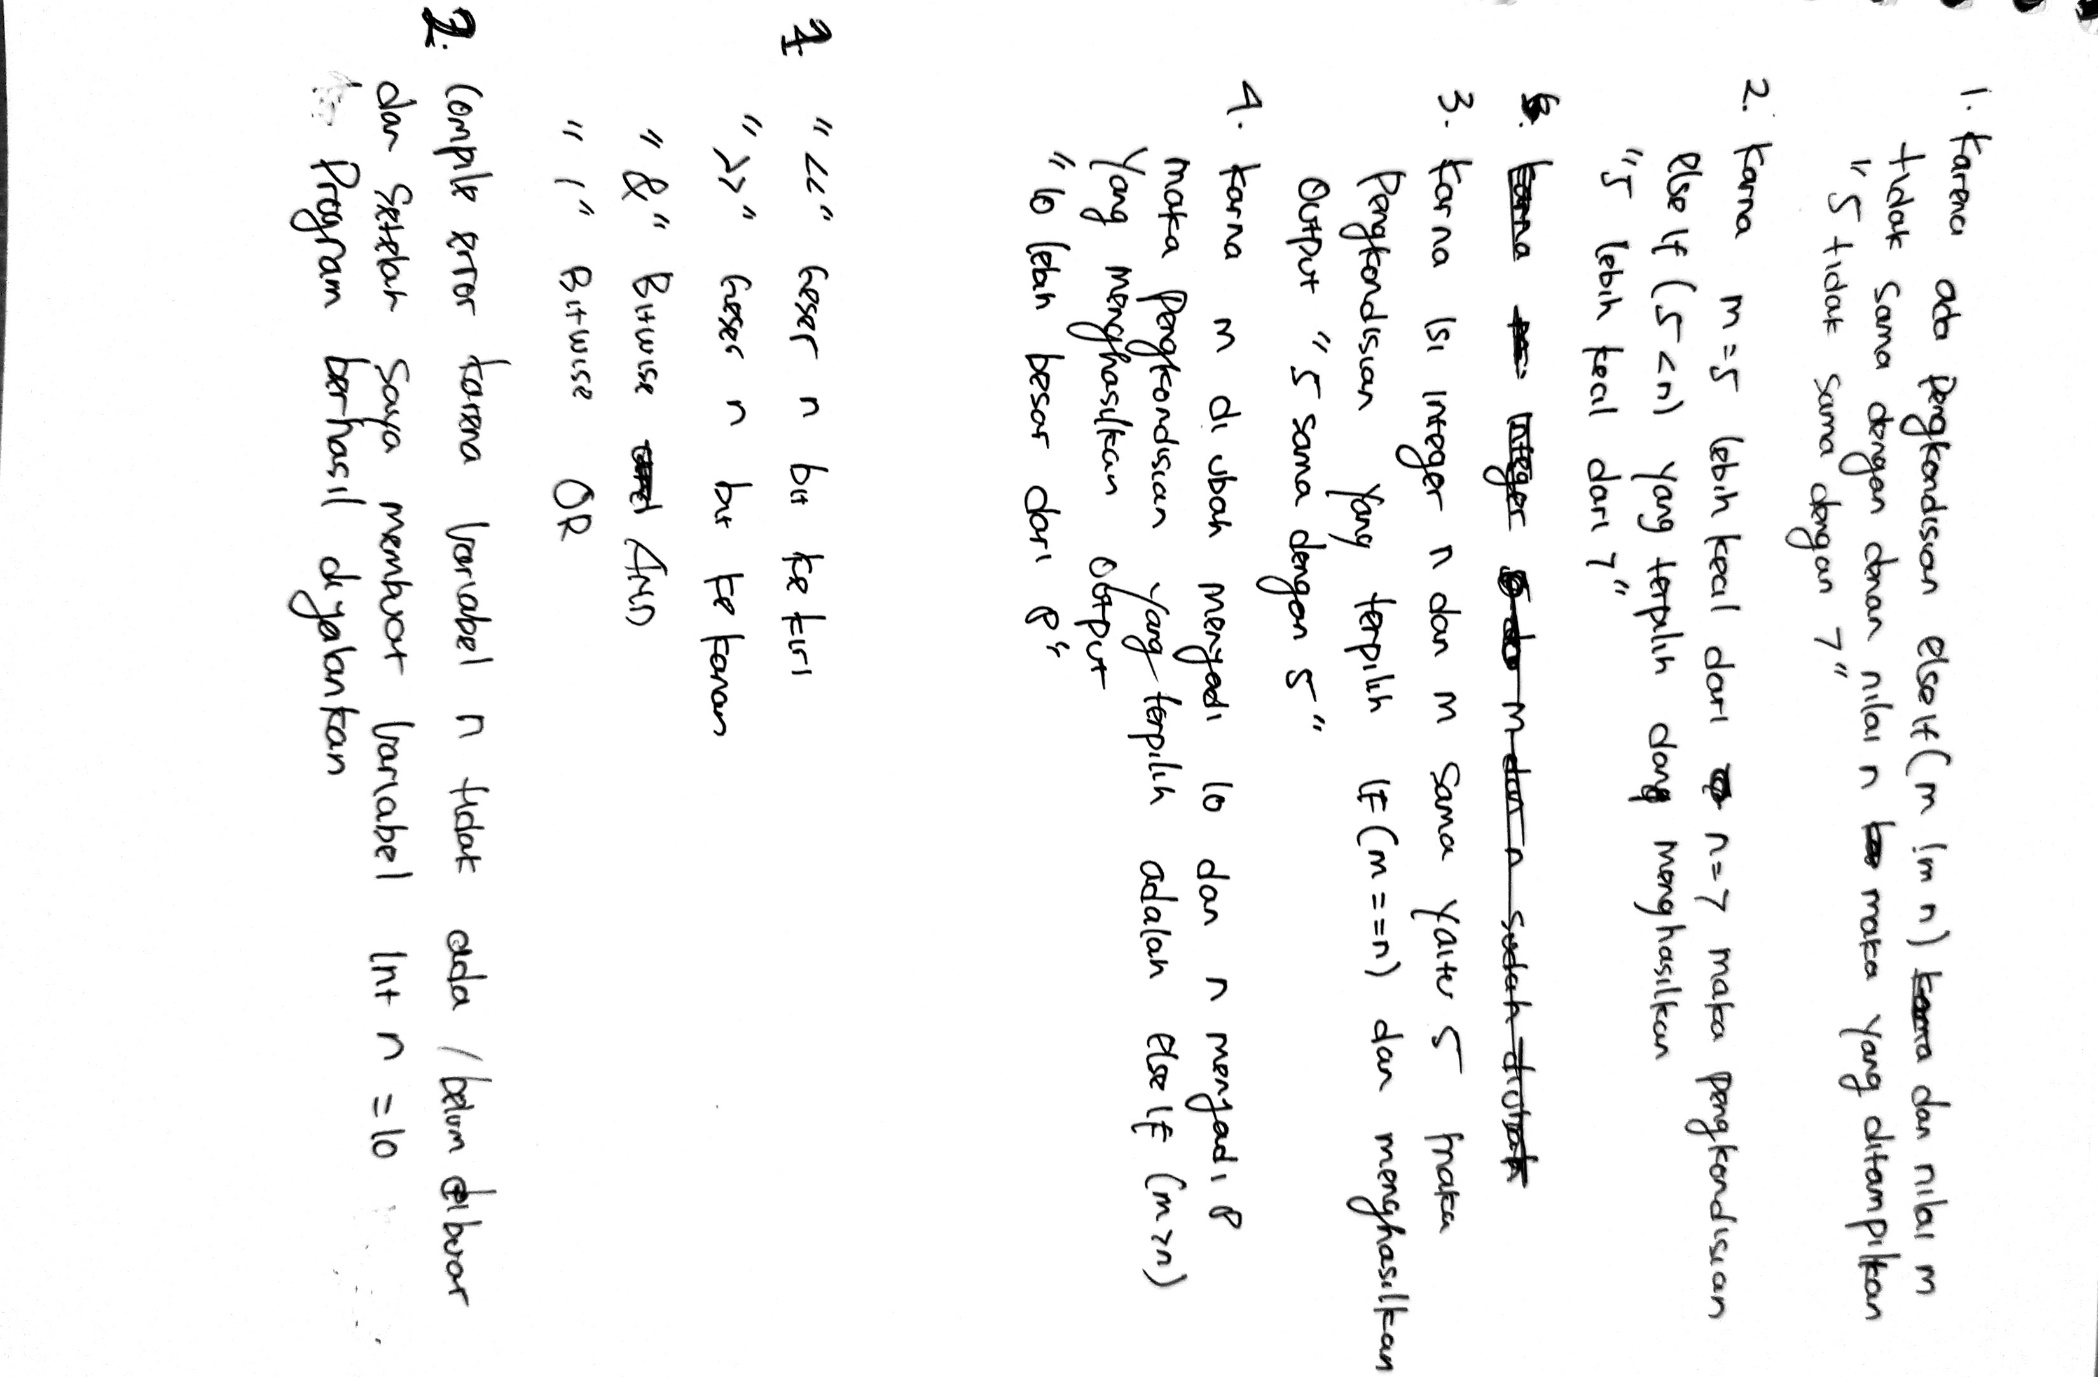 1. Karena ada pengkondisian else if (m != n) dan nilai m
tidak sama dengan dengan nilai n maka yang ditampilkan
"5 tidak sama dengan 7"
2. Karna m=5 lebih kecil dari n=7 maka pengkondisian
else if (5<n) yang terpilih dang menghasilkan
"5 lebih kecil dari 7"
Integer m dan n sudah diubah
3. Karna isi integer n dan m sama yaitu 5 maka
Pengkondisian yang terpilih if (m==n) dan menghasilkan
Output "5 sama dengan 5"
4. Karna m di ubah menjadi 10 dan n menjadi 8
maka pengkondisian yang terpilih adalah else if (m>n)
yang menghasilkan output
"10 lebih besar dari 8"
1 "<<" Geser n bit ke kiri
">>" Geser n bit ke kanan
"&" Bitwise AND
"|" Bitwise OR
2. Compile error karena variabel n tidak ada / belum dibuat
dan setelah saya membuat variabel int n = 10
Program berhasil dijalankan